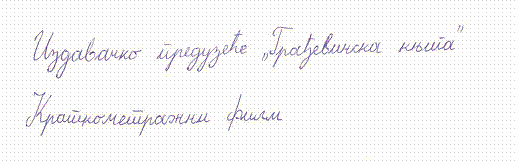 Издавачко предузеће „Грађевинска књига”
Краткометражни филм